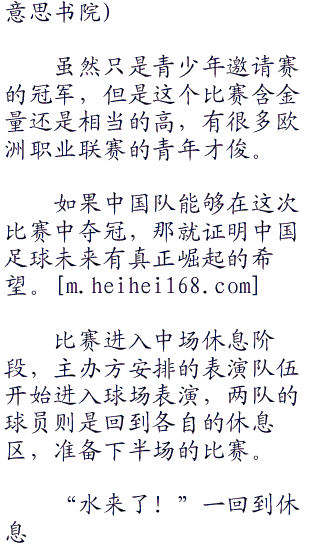 意思书院)
虽然只是青少年邀请赛
的冠军，但是这个比赛含金
量还是相当的高，有很多欧
洲职业联赛的青年才俊。
如果中国队能够在这次
比赛中夺冠，那就证明中国
足球未来有真正崛起的希
望。[m.heihei168.com]
比赛进入中场休息阶
段，主办方安排的表演队伍
开始进入球场表演，两队的
球员则是回到各自的休息
区，准备下半场的比赛。
“水来了！”一回到休
息